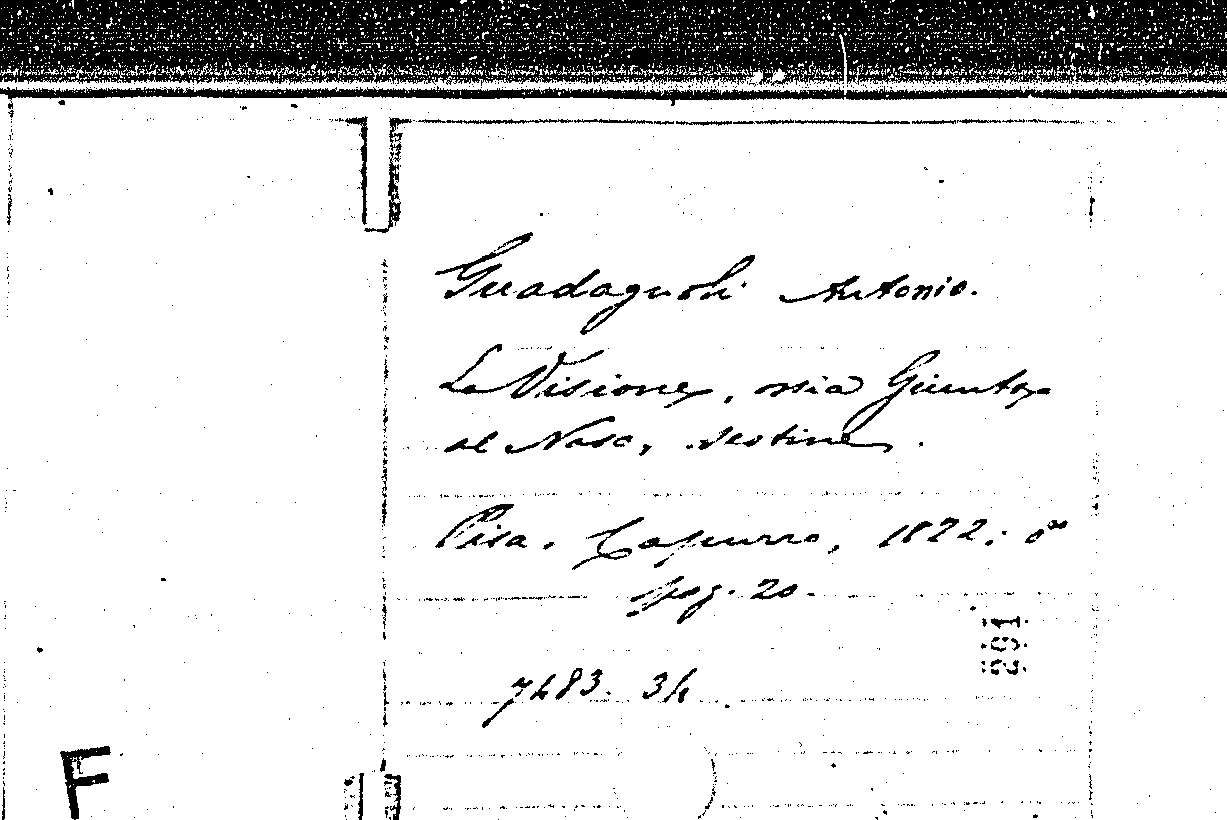 Guadagnoli Antonio.
La Visione, ossia Giunta
al Naso, sestine.
Pisa, Capurro, 1822; 8º
pag. 20.
291
7483. 34
F